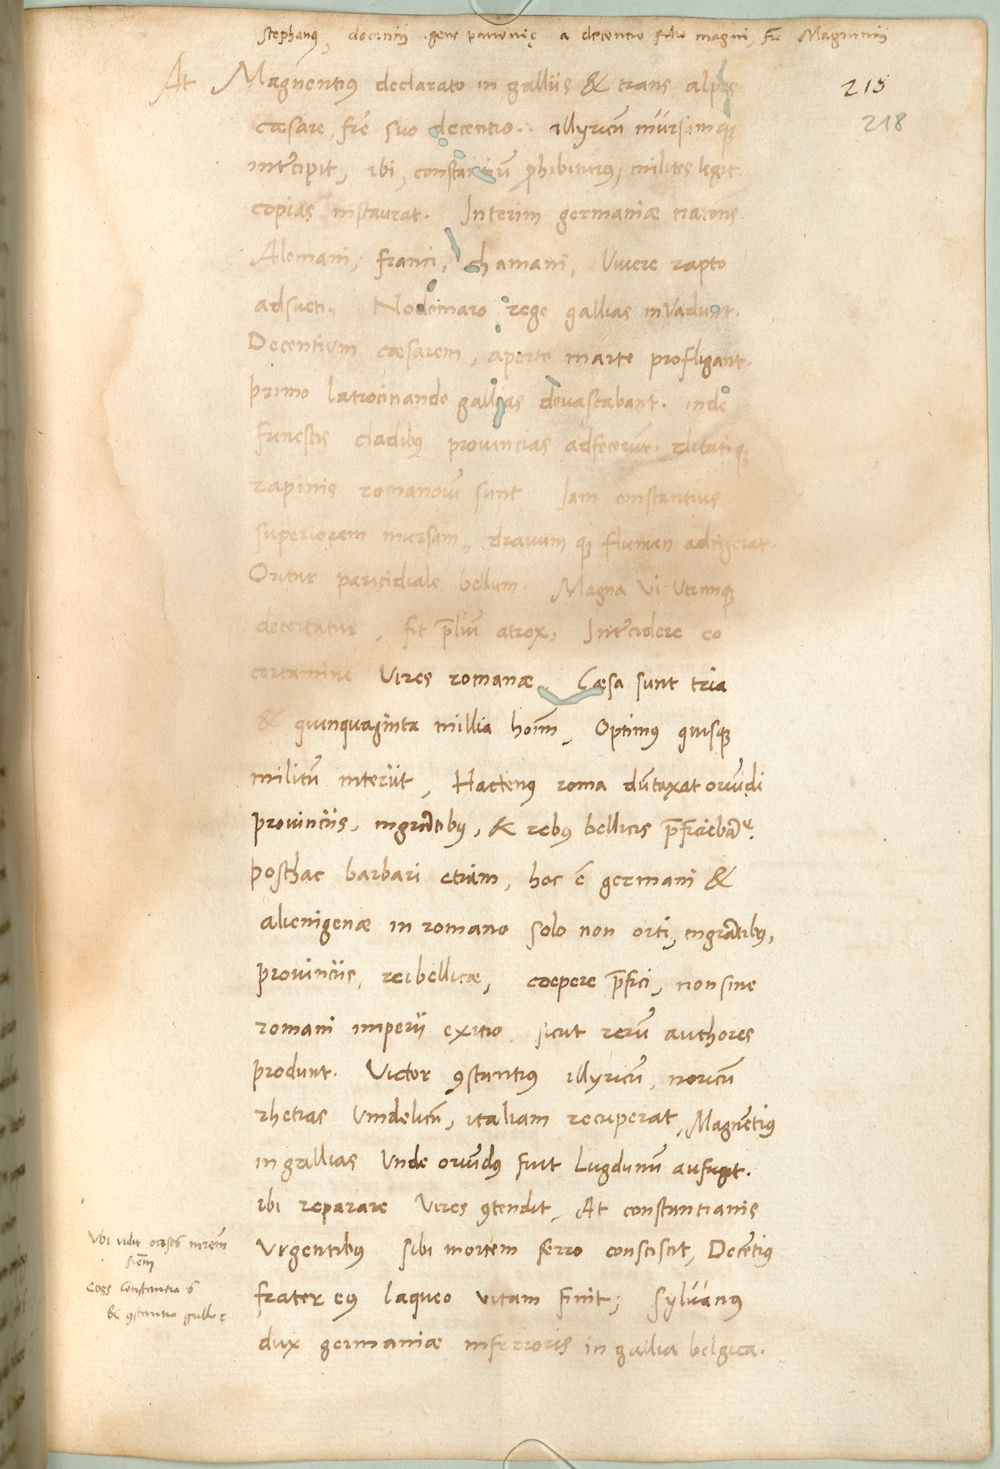 Stephanus, docentii gene pannonię a decentio fr̃e magni, fr̃e Magnentii
At Magnentius declarato in galliis & trans alpes
215
cæsare, fr̃e suo decentio. illyricũ mursamq;
218
intercipit, ibi, constantiũ prohibiturus, milites legit
copias instaurat. Interim germaniæ nations
Alemani, franci, chamani, Vivere rapto
adsueti, Nodomaro rege gallias invadunt.
Decentium cæsarem, aperto marte profligant.
primo latrocinando gallias devastabant. inde
funestis cladibus provincias adfecerũt.
rapinis romanorũ sunt Iam constantius
superiorem mursam, dravum q; flumen adtigerat.
Oritur paricidiale bellum. Magna vi utrinq;
decertatur, fit p̃liũ atrox, Intercidere eo
certamine vires romanæ. Cæsa sunt tria
& quinquaginta millia hoĩm, Optimus quisq;
militũ interiit, Hactenus roma dũtaxat oriũdi
provinciis, ingrãtibus, & rebus bellicis p̃ficiebãt.
posthac barbari etiam, hoc ẽ germani &
alienigenæ in romano solo non orti, ingrãtibus,
provinciis, rei bellicæ, coepere p̃fici, non sine
romani imperii exitio sicut rerũ authores
produnt. Victor 9stantius illyricũ, noricũ
rhetias Vindelicũ, italiam recuperat, Magnẽtius
in gallias Unde oriũdus fuit Lugdunũ aufugit.
ibi reparare vires 9tendit, At constantianis
Ubi vidit
Urgentibus sibi mortem ferro consciscit, Decẽtius
Coss Constantio 6
frater eius laqueo vitam finit; Sylvanus
& 9stantio gallo
dux germaniæ inferioris in gallia belgica.